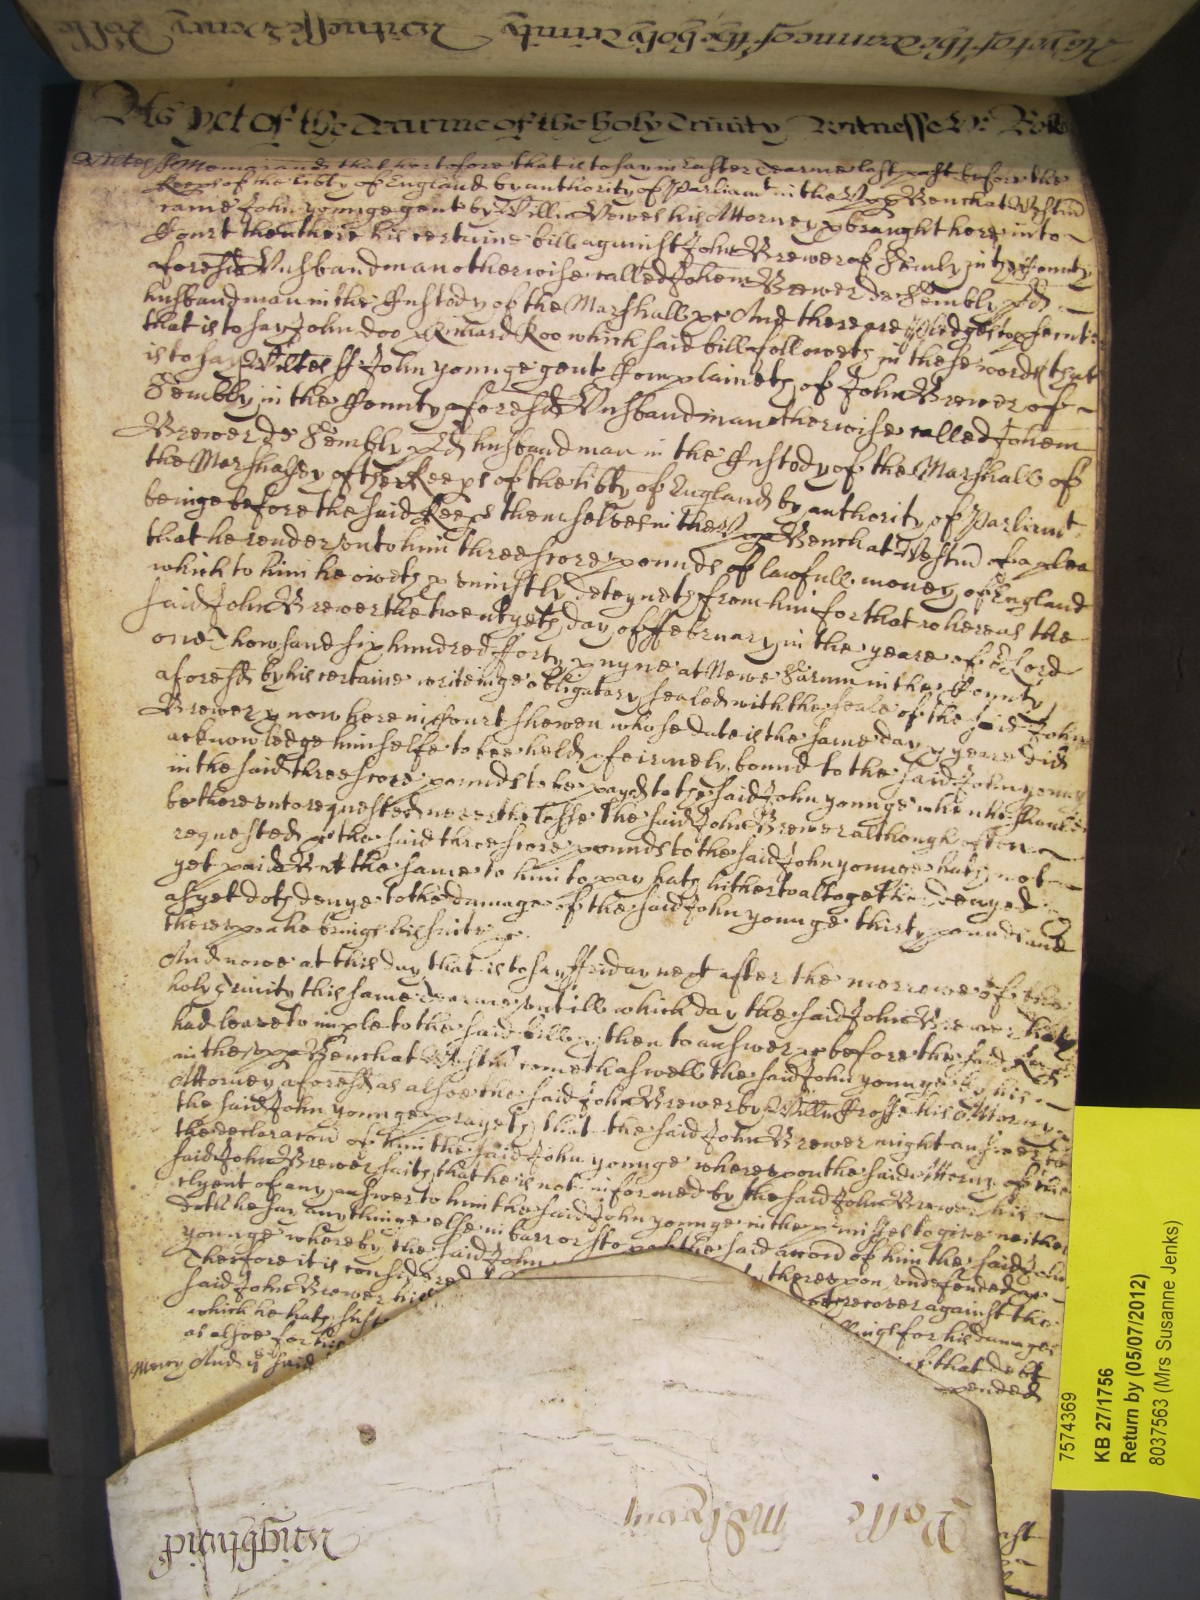 As yet of the Tearme of the holy Trinity Witnesse H: Rolle
Wiltes ss Memorand that heretofore that is to say in Easter Tearme last past before the
Keeps of the libty of England by authority of Parliamt in the Vpp Bench at Westm
came John younge gent by Willm Hewes his Attorney & brought here into
Court then there his certaine bill against John Brewer of Sembly in the County
aforesd Husbandman otherwise called Johem Brewer de Sembly pd
husbandman in the Custody of the Marshall &c And there are pledges to prosecute
that is to say John doo & Richard Roo which said bill followeth in these words that
is to say Wiltes ss John younge gent Complaineth of John Brewer of
Sembly in the County aforesd Husbandman otherwise called Johem
Brewer de Sembly pd husbandman in the Custody of the Marshall of
the Marshalsey of the Keeps of the libty of England by authority of Parliamt
beinge before the said Keeps themselves in the Vpp Bench at Westm of a plea
that he render unto him threescore pounds of lawfull money of England
which to him he oweth & uniustly deteyneth from him for that whereas the
said John Brewer the twentyeth day of February in the yeare of or Lord
one Thowsand six hundred forty & nyne at Newe Sarum in the County
aforesd by his certaine writeinge obligatary sealed with the seale of the said John
Brewer & now here in Court shewen whose date is the same day & yeare did
acknowledge himselfe to bee held & feirmely bound to the said John younge
in the said threescore pounds to be payed to the said John younge when he should
be thereunto requested neverthelesse the said John Brewer although often
requested &c the said threescore pounds to the said John younge hath not
yet paid But the same to him to pay hath hitherto altogether denyed &
as yet doth denye to the damage of the said John younge thirty pounds and
thereupon he brings his suite &c.
And nowe at this day that is to say Friday next after the morrowe of the
holy Trinity this same Tearme untill which day the said John Brewer hath
had leave to imple to the said bill & then to answer &c before the said Keeps
in the Upp Bench at Westm cometh aswell the said John younge by his
Attorney aforesd as alsoe the said John Brewer by Willm Crosse his Attorney &
the said John younge prayeth that the said John Brewer might answer to
the declaracon of him the said John younge whereupon the said Attorny of the
said John Brewer saith that he is not informed by the said John Brewer his
clyent of any answer to him the said John younge in the pmisses to give neither
doth he say any thinge else in barr or stop of the said accon of him the said John
younge whereby the said John thereupon undefended &c
Therefore it is considered recover against the
said John Brewer his
which he hath sust llings for his damages
as alsoe for his that debt
Mercy And ye said pended
Rolle
7574369
KB 27/1756
Return by (05/07/2012)
8037563 (Mrs Susanne Jenks)